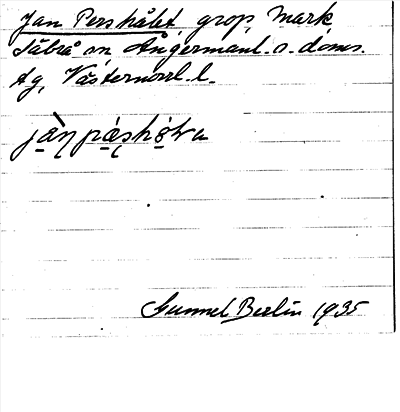 Jan Pershålet, grop, Mark
Säbrå sn Ångermanl. s. doms.
Ag, Västernorrl. l.
Gunnel Berlin 1935